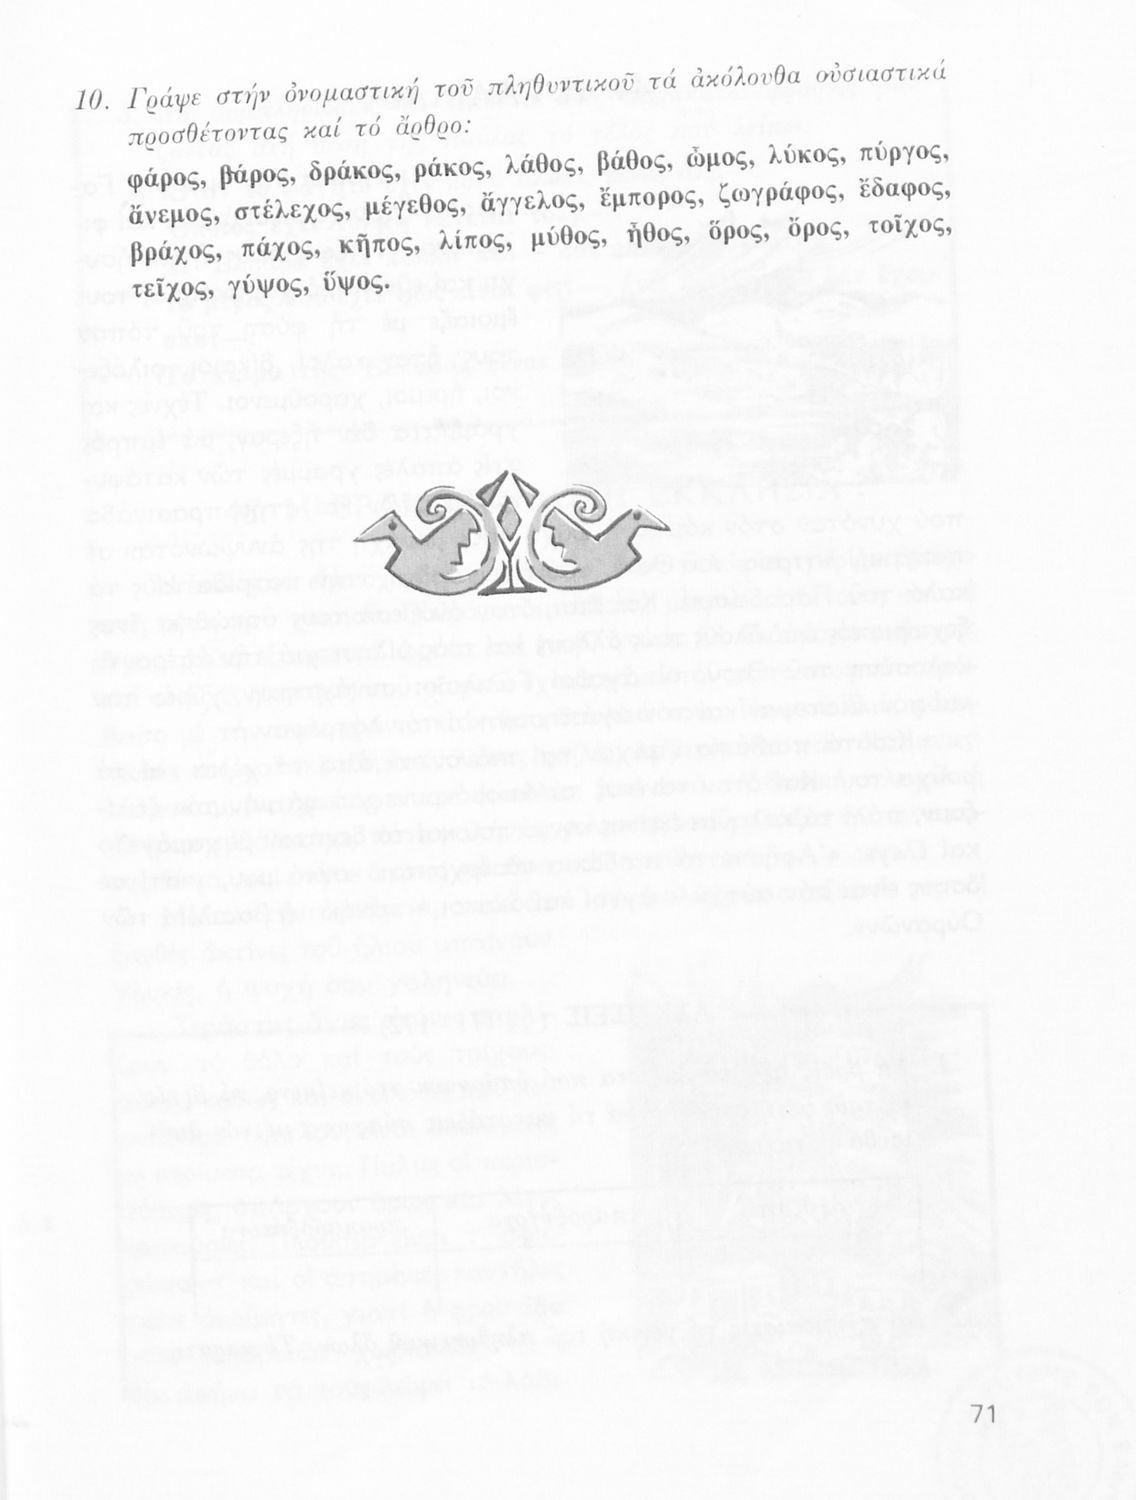 10. Γράψε στήν ὀνομαστική τοῦ πληθυντικοῦ τά ἀκόλουθα οὐσιαστικά
προσθέτοντας καί τό ἄρθρο:
φάρος, βάρος, δράκος, ράκος, λάθος, βάθος, ὦμος, λύκος, πύργος,
ἄνεμος, στέλεχος, μέγεθος, ἄγγελος, ἔμπορος, ζωγράφος, ἔδαφος,
βράχος, πάχος, κῆπος, λίπος, μύθος, ἦθος, ὅρος, ὄρος, τοῖχος,
τεῖχος, γύψος, ὕψος.
71